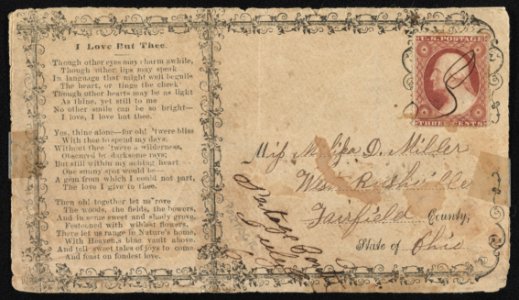 I Love But Thee.
Though other eyes may charm awhile,
Though other lips may speak
In language that might well beguile
The heart, or tinge the cheek
Though other hearts may be as light
As thine, yet still to me
No other smile can be so bright—
I love, I love but thee.
Yes, thine alone—for oh! 'twere bliss
With thee to spend my days.
Without thee 'twere a wilderness,
Obscured by darksome rays;
But still within my aching heart
One sunny spot would be—
A gem from which I could not part,
The love I give to thee.
Then oh! together let us rove
The woods, the fields, the bowers,
And in some sweet and shady grove,
Festooned with wildest flowers.
There let us range in Nature's home,
With Heaven's blue vault above.
And tell sweet tales of joys to come
And feast on fondest love.
U.S. POSTAGE
THREE CENTS
Miss D. Miller
West Rushville
Fairfield County,
State of Ohio